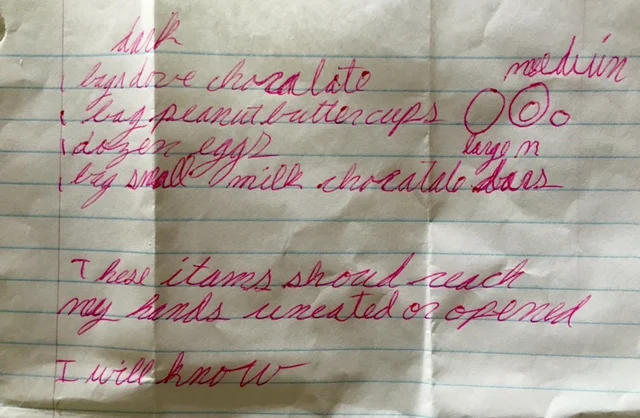 dark
1 bag dove chocalate
medium
1 bag peanutbuttercups
1 dozen eggs
large m
1 bag small milk chocatale bars
These itams shoud reach
my hands uneated or opened
I will know